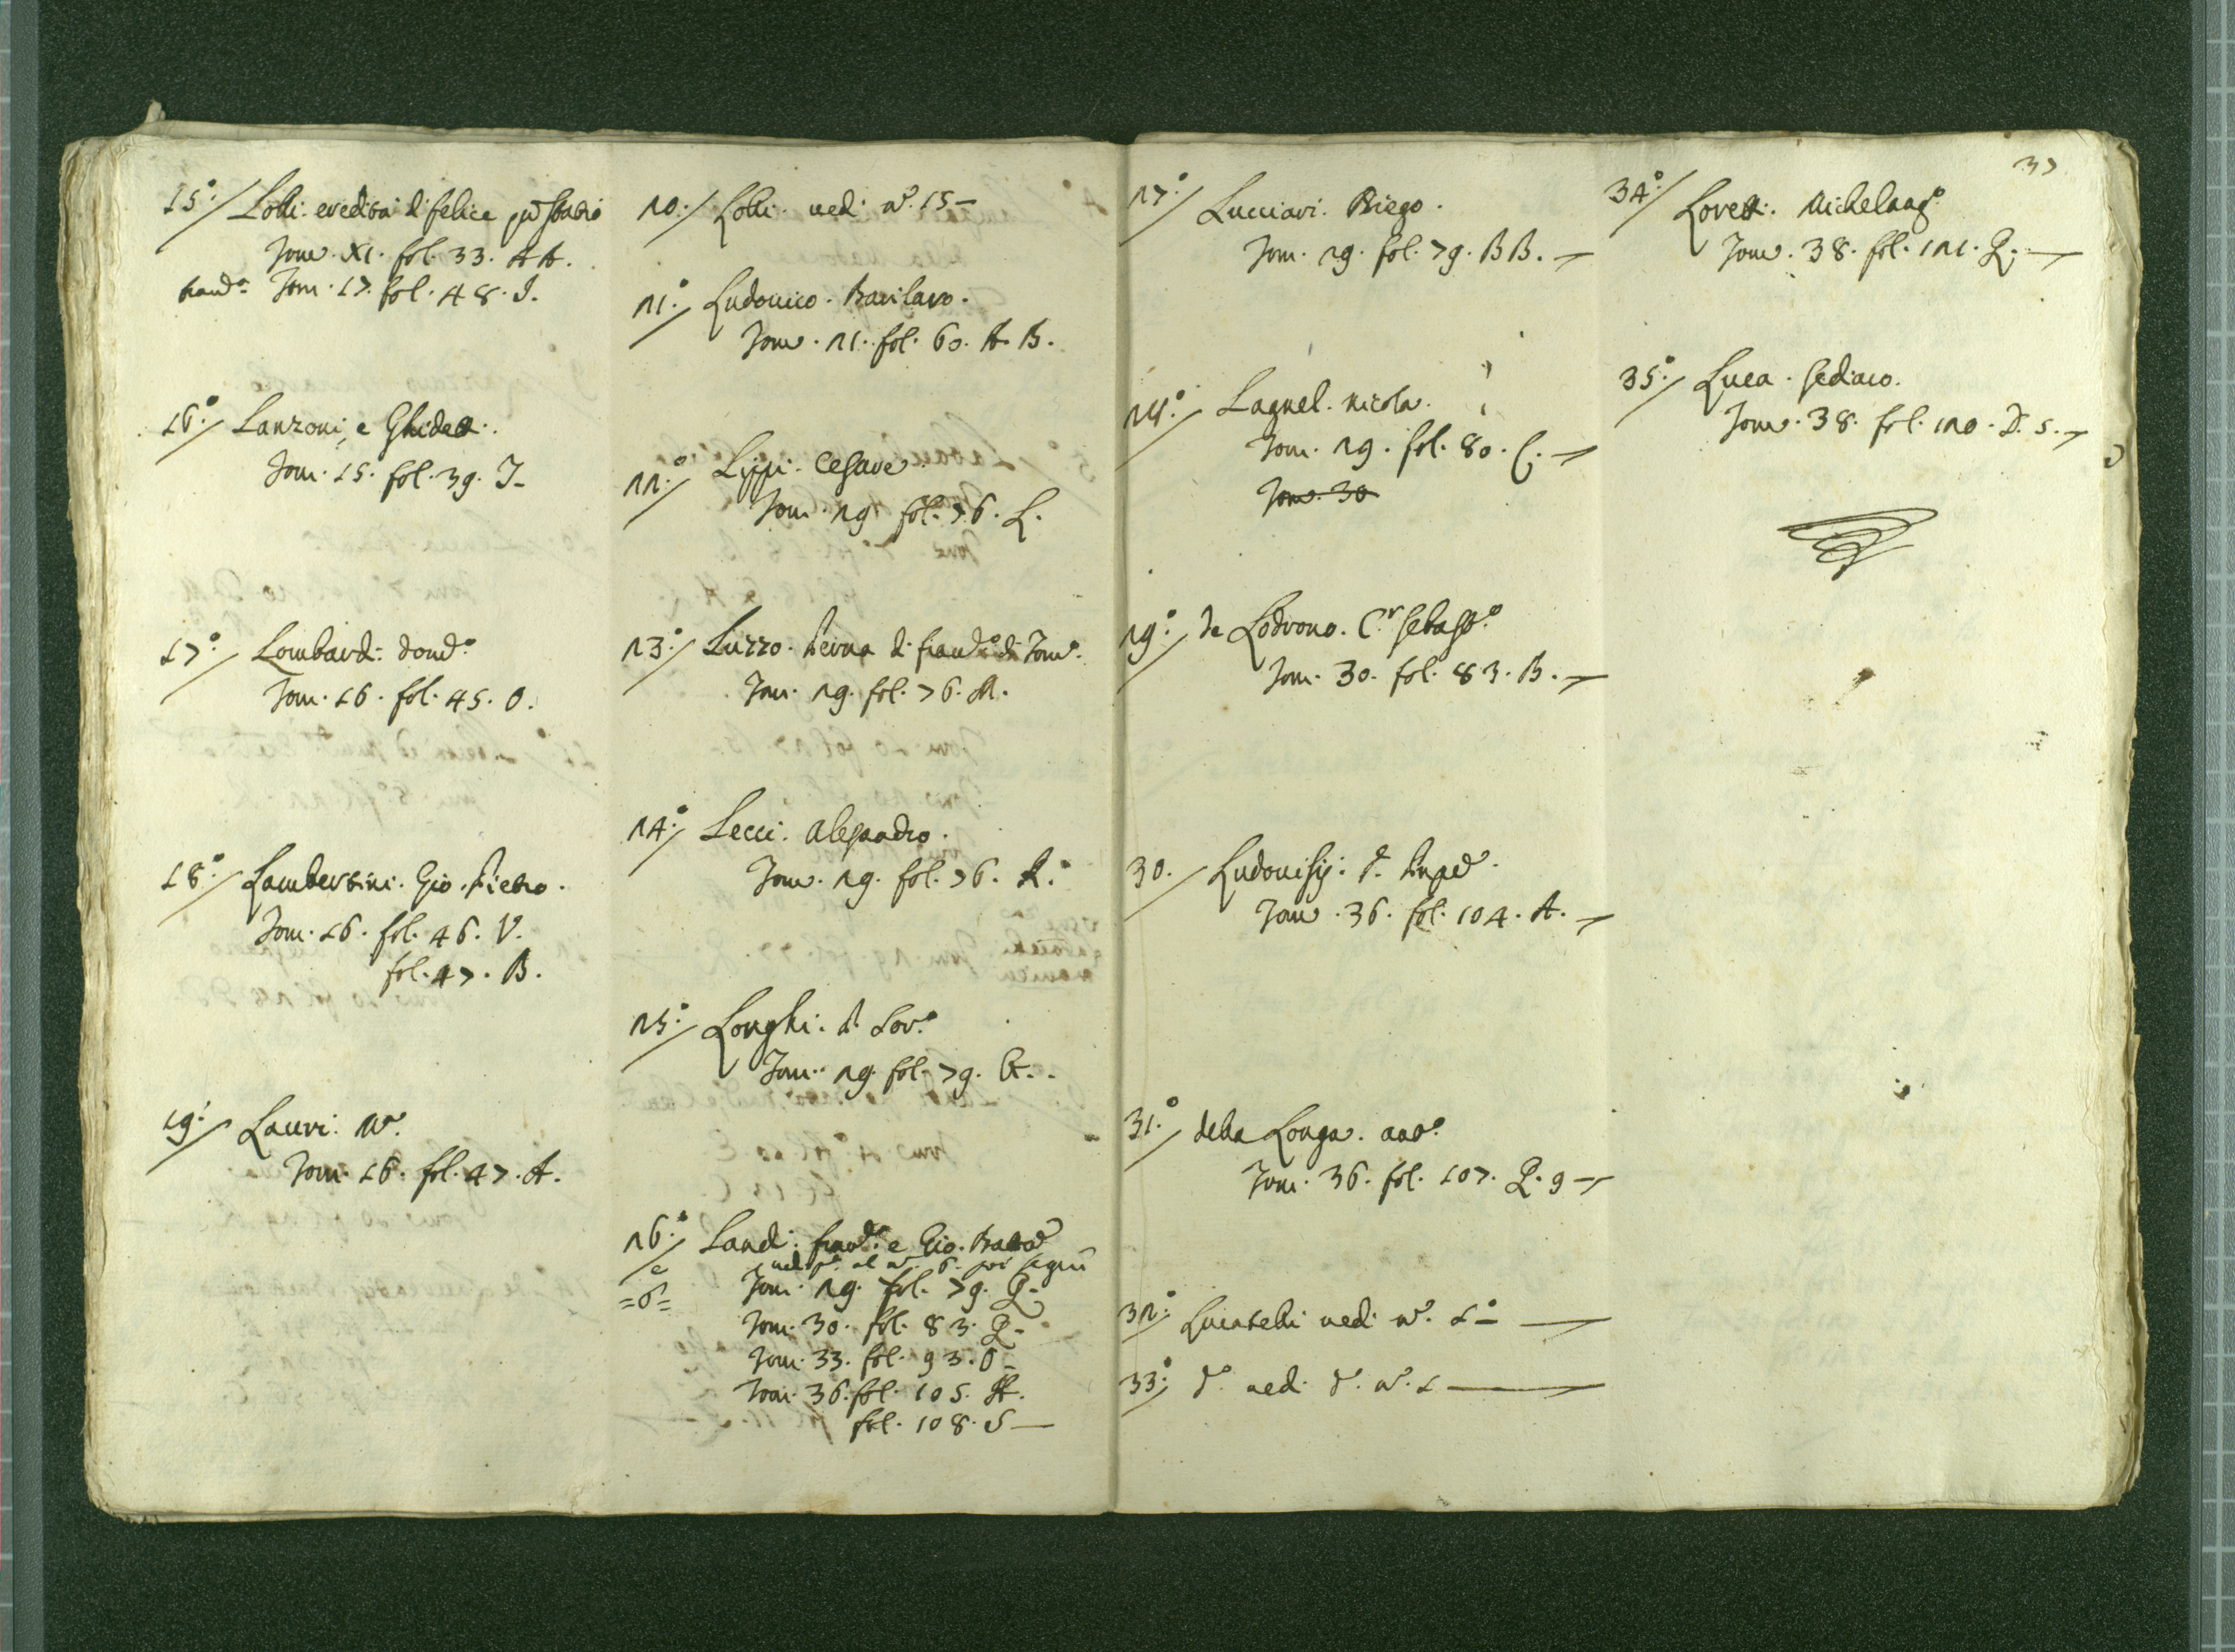 15°: Lolli. eredità di felice
Tom. XI. fol. 33. AA.
Tom. 17. fol. 48. I.
16°: Lanzoni, e Ghidett:.
Tom. 15. fol. 39. I-
17°: Lombard: Dom.º
Tom. 16. fol. 45. O.
18°: Lambertini. Gio. Pietro.
Tom. 16. fol. 46. V.
fol. 47. B.
19: Lauri.
Tom. 16. fol. 47. A.
20: Lolli. ved: n.º 15-
21°: Ludovico. Barilaro.
Tom. 21. fol. 60. A. B.
22°: Lippi. Cesare.
Tom. 29 fol. 76. L.
23°: Luzzo. di Fran.º di Tom.º
Tom. 29. fol. 76. M.
24°: Lecci. Alessandro.
Tom. 29. fol. 76. R.
25°: Longhi. d. Lor.º
Tom. 29. fol. 79. G.
26°: Land: e Gio. Batta
e ved. al n.º 6. poi
=6= Tom. 29. fol. 79. Q-
Tom. 30. fol. 83. Q-
Tom. 33. fol. 93. O-
Tom. 36. fol. 105. H.
fol. 108. S-
37
27°: Lucciari. Diego.
Tom. 29. fol. 79. BB.-
28°: Lagnel. Nicola.
Tom. 29. fol. 80. C.-
Tom. 30
29°: de Lodrono. C.r Sebast.º
Tom. 30. fol. 83. B.-
30. Ludovisij:
Tom. 36. fol. 104. A.-
31°: della Longa. Ant.º
Tom. 36. fol. 107. Q. 9-
32°: Lucatelli ved: n.º 1°-
33°: d.º ved: d.º n.º 1-
34°: Lorett: Michelang.º
Tom. 38. fol. 121. Q.-
35°: Luca. Sediaco.
Tom. 38. fol. 120. D. 5.-